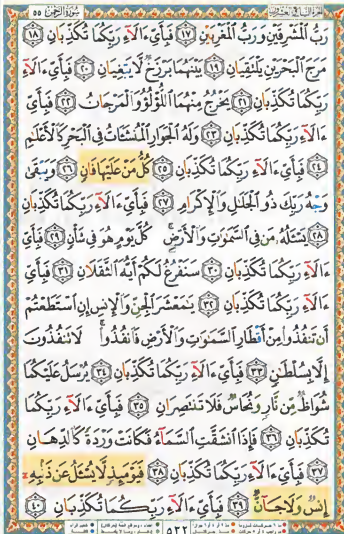 سورة الرحمن ٥٥
رَبُّ ٱلْمَشْرِقَيْنِ وَرَبُّ ٱلْمَغْرِبَيْنِ ١٧ فَبِأَىِّ ءَالَآءِ رَبِّكُمَا تُكَذِّبَانِ ١٨
مَرَجَ ٱلْبَحْرَيْنِ يَلْتَقِيَانِ ١٩ بَيْنَهُمَا بَرْزَخٌ لَّا يَبْغِيَانِ ٢٠ فَبِأَىِّ ءَالَآءِ
رَبِّكُمَا تُكَذِّبَانِ ٢١ يَخْرُجُ مِنْهُمَا ٱللُّؤْلُؤُ وَٱلْمَرْجَانُ ٢٢ فَبِأَىِّ
ءَالَآءِ رَبِّكُمَا تُكَذِّبَانِ ٢٣ وَلَهُ ٱلْجَوَارِ ٱلْمُنشَـَٔاتُ فِى ٱلْبَحْرِ كَٱلْأَعْلَٰمِ
٢٤ فَبِأَىِّ ءَالَآءِ رَبِّكُمَا تُكَذِّبَانِ ٢٥ كُلُّ مَنْ عَلَيْهَا فَانٍ ٢٦ وَيَبْقَىٰ
وَجْهُ رَبِّكَ ذُو ٱلْجَلَٰلِ وَٱلْإِكْرَامِ ٢٧ فَبِأَىِّ ءَالَآءِ رَبِّكُمَا تُكَذِّبَانِ
٢٨ يَسْـَٔلُهُۥ مَن فِى ٱلسَّمَٰوَٰتِ وَٱلْأَرْضِ ۚ كُلَّ يَوْمٍ هُوَ فِى شَأْنٍ ٢٩ فَبِأَىِّ
ءَالَآءِ رَبِّكُمَا تُكَذِّبَانِ ٣٠ سَنَفْرُغُ لَكُمْ أَيُّهَ ٱلثَّقَلَانِ ٣١ فَبِأَىِّ
ءَالَآءِ رَبِّكُمَا تُكَذِّبَانِ ٣٢ يَٰمَعْشَرَ ٱلْجِنِّ وَٱلْإِنسِ إِنِ ٱسْتَطَعْتُمْ
أَن تَنفُذُوا۟ مِنْ أَقْطَارِ ٱلسَّمَٰوَٰتِ وَٱلْأَرْضِ فَٱنفُذُوا۟ ۚ لَا تَنفُذُونَ
إِلَّا بِسُلْطَٰنٍ ٣٣ فَبِأَىِّ ءَالَآءِ رَبِّكُمَا تُكَذِّبَانِ ٣٤ يُرْسَلُ عَلَيْكُمَا
شُوَاظٌ مِّن نَّارٍ وَنُحَاسٌ فَلَا تَنتَصِرَانِ ٣٥ فَبِأَىِّ ءَالَآءِ رَبِّكُمَا
تُكَذِّبَانِ ٣٦ فَإِذَا ٱنشَقَّتِ ٱلسَّمَآءُ فَكَانَتْ وَرْدَةً كَٱلدِّهَانِ
٣٧ فَبِأَىِّ ءَالَآءِ رَبِّكُمَا تُكَذِّبَانِ ٣٨ فَيَوْمَئِذٍ لَّا يُسْـَٔلُ عَن ذَنۢبِهِۦٓ
إِنسٌ وَلَا جَآنٌّ ٣٩ فَبِأَىِّ ءَالَآءِ رَبِّكُمَا تُكَذِّبَانِ ٤٠
٥٣٢